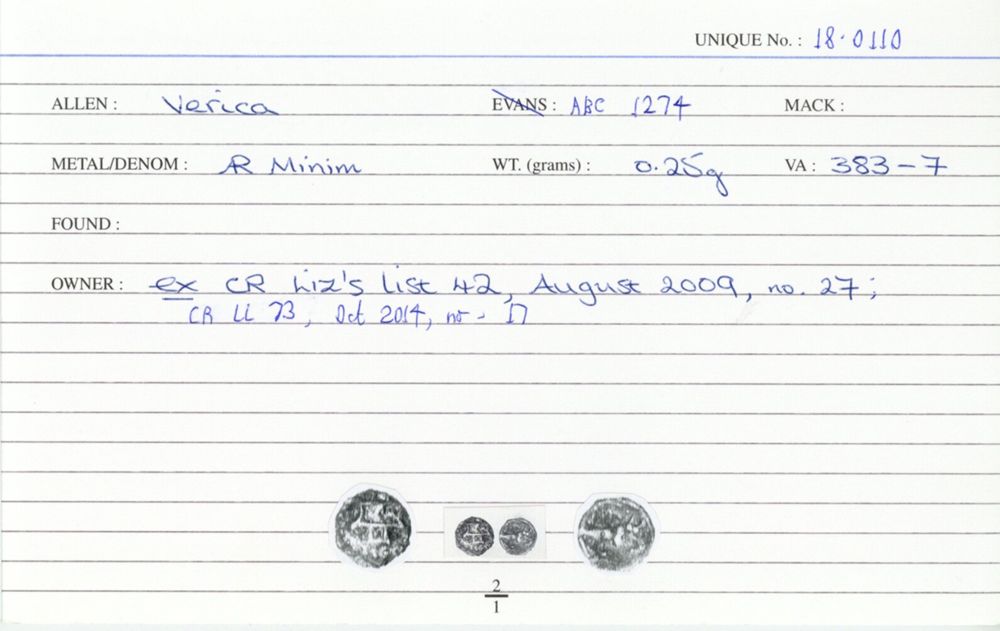 UNIQUE No. : 18.0110
ALLEN : Verica EVANS : ABC 1274 MACK :
METAL/DENOM : AR Minim WT. (grams) : 0.25g VA : 383-7
FOUND :
OWNER : ex CR Liz's list 42, August 2009, no. 27;
CR LL 73, Oct 2014, no. 17
2
1